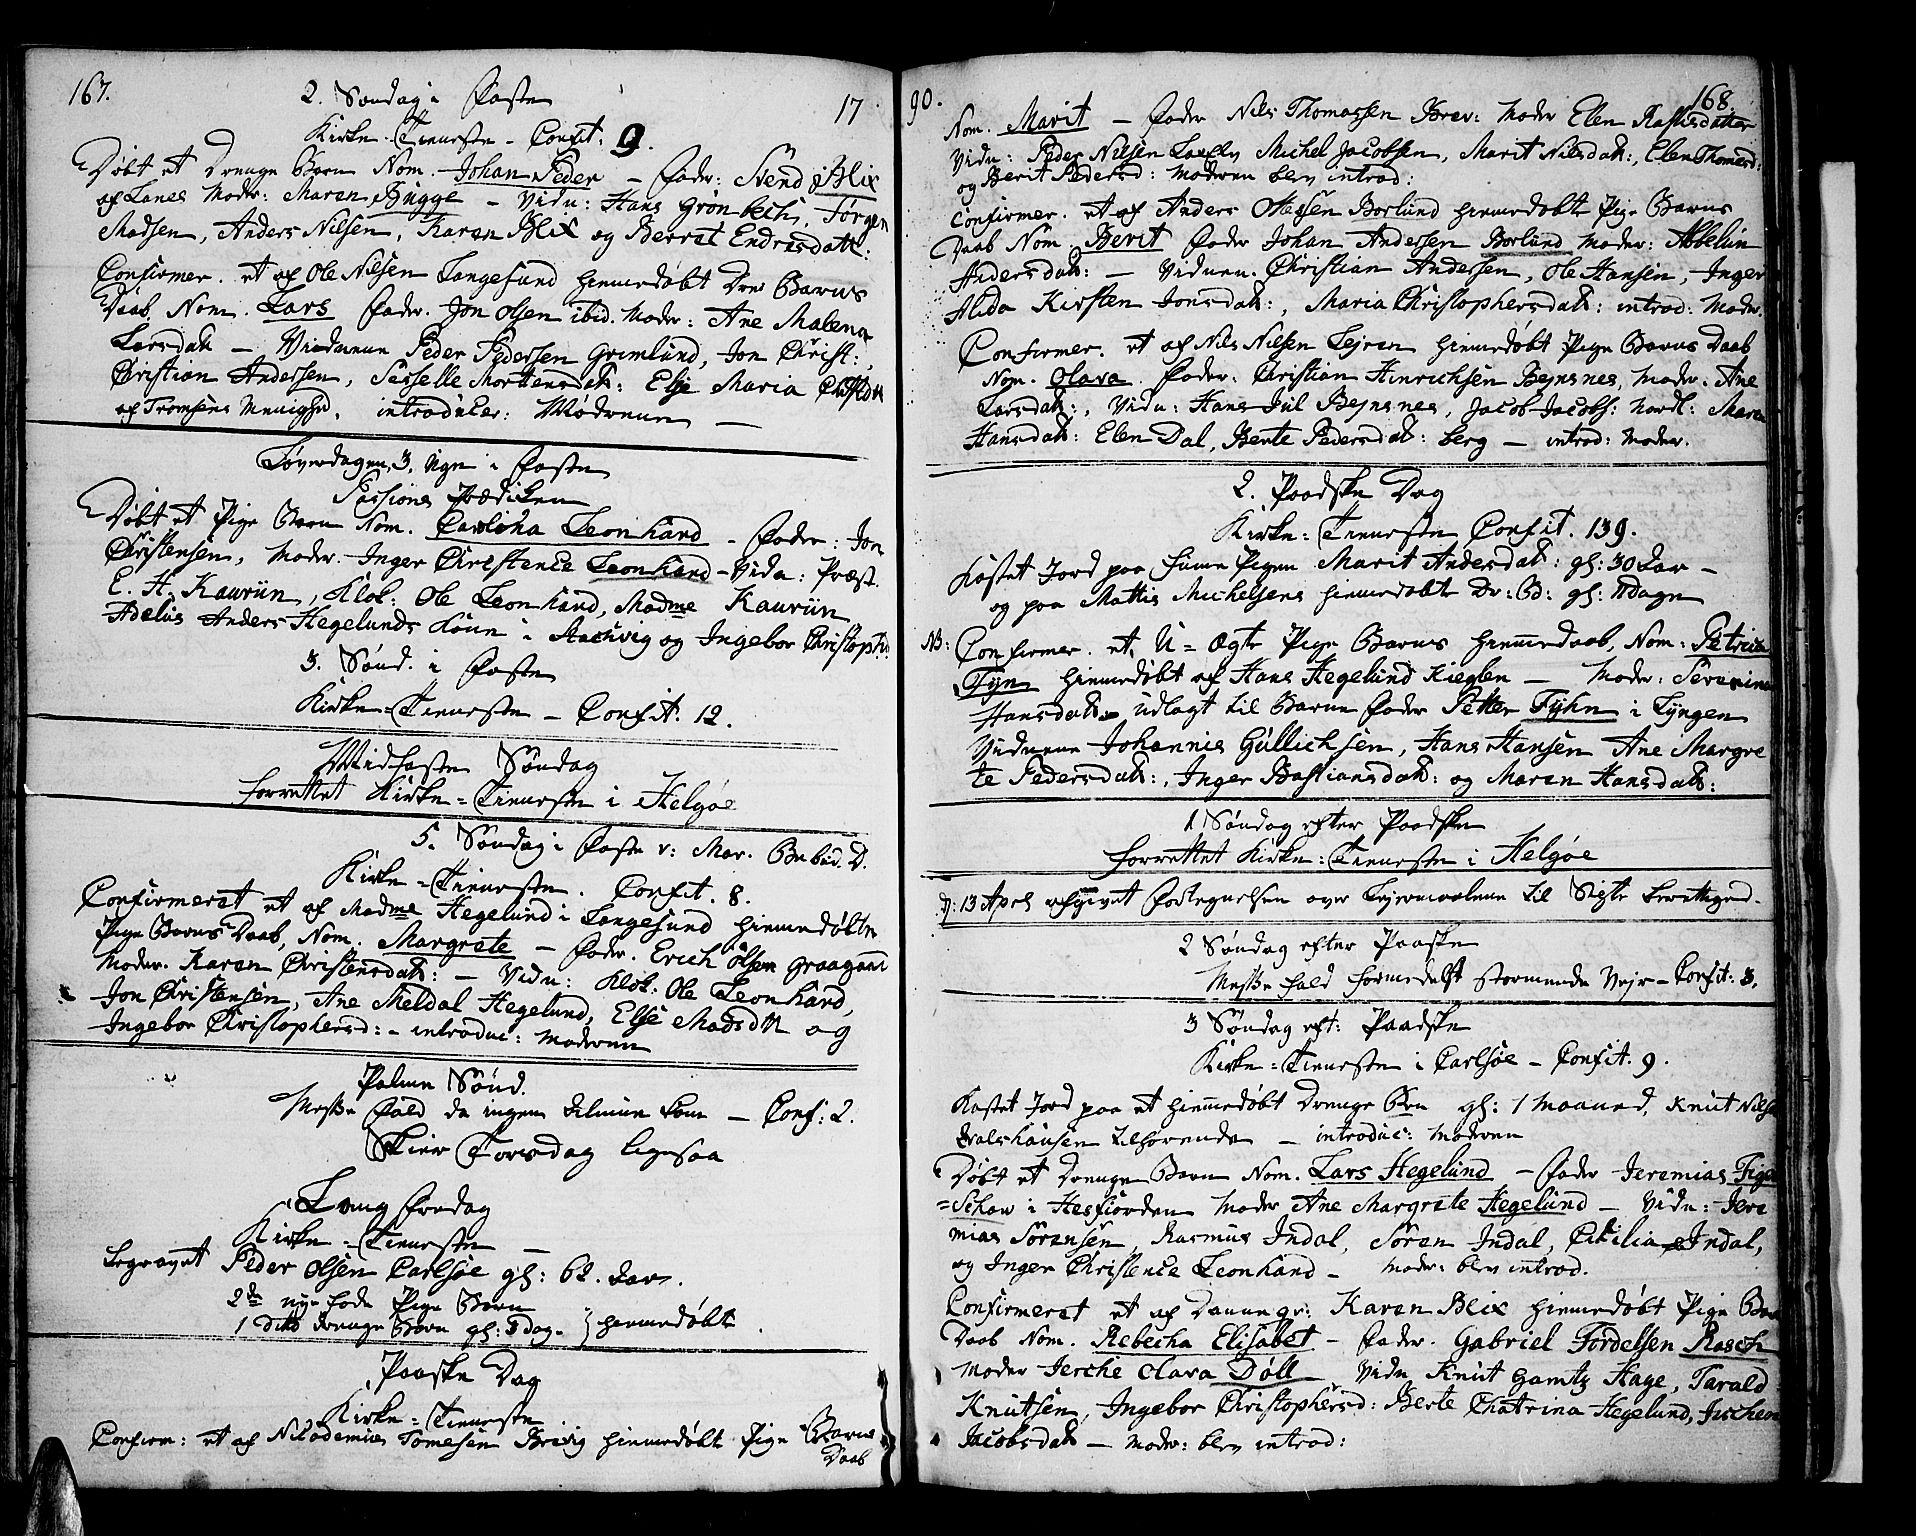 167.
2. Søndag i Faste
17
Kirke-Tieneste - Confit: 9.
Døbt et Drenge Barn Nom. Johan Peder - Fader: Svend Blix
af Lanes Moder: Maren Bügge - Vidn: Hans Grønbech, Jørgen
Madsen, Anders Nilsen, Karen Blix og Berret Endresdatt:
Confirmer. et af Ole Nilsen Langesund hiemmedøbt Dren Barns
Daab, Nom. Lars Fader. Jon Olsen ibid. Moder: Ane Malena
Larsdatt - Vidnerne Peder Pedersen Grimlund, Jon Christ:,
Christian Andersen, Sisselle Mortensdatt: Else Maria
af Tromsens Menighd. introducer: Moderen
Løverdagen 3. Uge i Faste
Passions Prædiken
Døbt et Pige Barn Nom. Carolina Leonhard - Fader: Jon
Christensen, Moder. Inger Christence Leonhard - Vidn: Præst.
E. H. Kaurün, Klok: Ole Leonhard, Madme Kaurün
Adelus Anders Hegelunds Kone i og Ingebor Christoph:
3. Sønd. i Faste
Kirke-Tieneste - Confit. 12.
Midfaste Søndag
forrettet Kirke-Tieneste i Helgøe
5. Søndag i Faste v: Mar. Bebud. D.
Kirke-Tieneste. Confit. 8.
Confirmeret et af Madme Hegelund i Langesund hiemmedøbte
Pige Barns Daab, Nom. Margrete - Fader. Erich Olsen
Moder. Karen Christensdatt: - Vidn: Klok: Ole Leonhard,
Jon Christensen, Ane Meldal Hegelund, Else Madsdtt og
Ingebor Christophersd: - introduc: moderen
Palme Sønd.
Messe Fald da ingen Almue kom - Conf: 2.
Skier Torsdag ligesaa
Lang Fredag
Kirke-Tieneste -
begravet Peder Olsen Carlsøe gl: 62. Aar.
2de nye fødte Pige Børn
1 dito drenge Barn gl: 3 dag. } hiemmedøbt.
Paaske Dag
Kirke-Tieneste
Confirm: et af Nicodemus Tomesen Brevig hiemmedøbt Pige Barns
Daab
90.
168.
Nom. Marit - Fader Nils Thomassen Brev: Moder Elen Rastisdatter
Vidn: Peder Nilsen Michel Jacobsen, Marit Nilsdatt:, Elen Thomesd:
og Berit Pedersd: Moderen blev introd:
Confirmer. et af Anders Olesen Borlund hiemmedøbt Pige Barns
Daab Nom Berit Fader Johan Andersen Borlund Moder: Abbelun
Andersdatt: - Vidnen. Christian Andersen, Ole Hansen, Inger
Alida Kirsten Jonsdatt:, Maria Christophersdatt: introd: Moder.
Confirmer. et af Nils Nilsen Lejren hiemmedøbt Pige Barns Daab
Nom. Olava. Fader: Christian Hinrichsen Bejnsnes, Moder. Ane
Larsdatt:, Vidn: Hans Jül Bejnsnes, Jacob Jacobs: Nordl: Maren
Hansdatt: Elen Dal, Berte Pedersdatt: berg - introd: Moder.
2. Paaske Dag
Kirke-Tieneste Confit. 139.
Kastet Jord paa Pigen Marit Andersdatt: gl: 30 Aar -
og paa Mattis Michelsens hiemmedøbt Dr: B: gl: 11 Dage
NB: Confirmer. et U-Ægte Pige Barns Hiemmedaab, Nom: Petrica
Fyn hiemmedøbt af Hans Hegelund Kieglen - Moder: Severina
Hansdatt. udlagt til Barne Fader Petter Fyhn i Lyngen
Vidnerne Johannis Güllichsen, Hans Hansen Ane Margre
te Pedersdatt:, Inger Bastiansdatt: og Maren Hansdatt:
1 Søndag efter Paaske
forrettet Kirke-Tieneste i Helgøe
D: 13 April afgivet Fortegnelsen over Lejermaalene til Sigte berettigend.
2 Søndag efter Paaske
Messe fald formedelst stormende Vejr - Confit: 3.
3 Søndag eft: Paaske
Kirke-Tieneste i Carlsøe - Confit. 9.
Kastet Jord paa et hiemmedøbt Drenge Brn gl: 1 maaned, Knut Nilsen
Dalshausen tilhørende - introduc: Moderen
Døbt et Drenge Barn Nom. Lars Hegelund - Fader Jeremias Figen
=Schow i Hesfiorden Moder Ane Margrete Hegelund - Vidn: Jere
mias Sørensen, Rasmus Indal, Søren Indal, Cicilia Indal,
og Inger Christence Leonhard - Moder: blev introd.
Confirmeret et af Karen Blix hiemmedøbt Pige Barn
Daab Nom. Rebecha Elisabet - Fader. Gabriel Tordelsen Rasch
Moder Jerche Olava Døll Vidn Knut Gamtz Hage, Tarald
Knutsen, Ingebor Christophersd: Berte Chatrina Hegelund,
Jacobsdatt - Moder: blev introd: